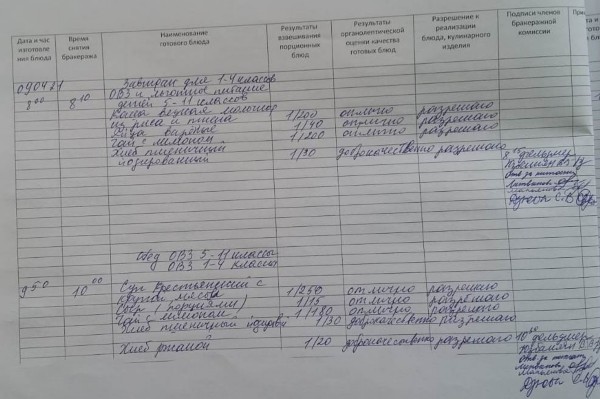 Дата и час изготовления блюд
Время снятия бракеража
Наименование готового блюда
Результаты взвешивание порционных блюд
Результаты органолептической оценки качества готовых блюд
Разрешение к реализации блюда, кулинарного изделия
Подписи членов бракеражной комиссии
При
090421 Завтрак для 1-4 классов
ОВЗ и льготное питание
8 00 8 10 детей 5-11 классов
Каша вязкая молочная
из риса и пшена 1/200 отлично разрешаю
Яйца вареные 1/40 отлично разрешаю
Чай с лимоном 1/200 отлично разрешаю
Хлеб пшеничный
йодированный 1/30 доброкачественно разрешаю
фельдшер
отв за питание
Обед ОВЗ 5-11 классы
ОВЗ 1-4 классы
9 50 10 00 Суп крестьянский с
крупой 1/250 отлично разрешаю
Сыр (порциями) 1/15 отлично разрешаю
Чай с лимоном 1/180 отлично разрешаю
Хлеб пшеничный 1/30 доброкачественно разрешаю
Хлеб ржаной 1/20 доброкачественно разрешаю
фельдшер
отв за питание